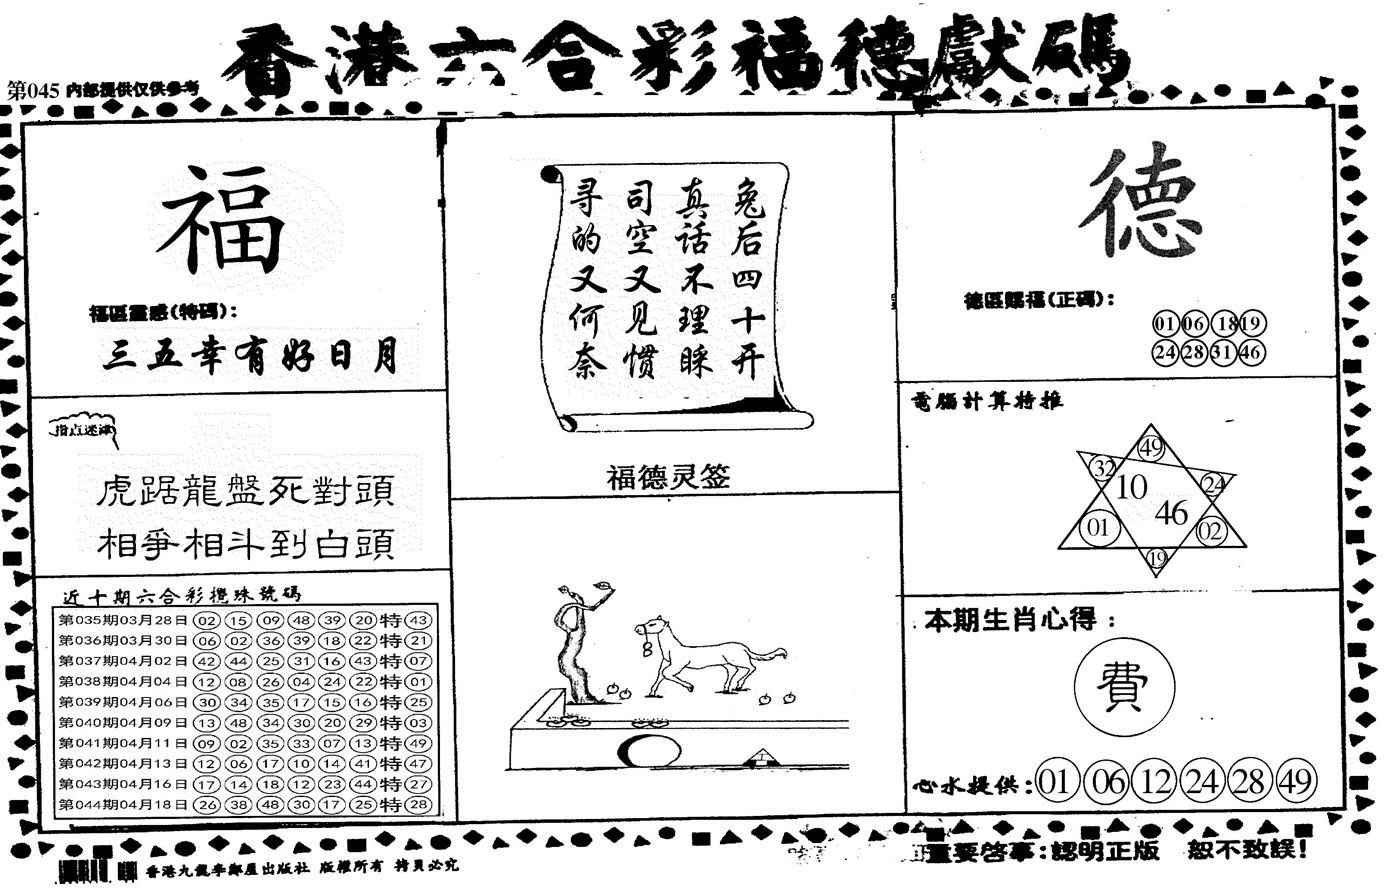 香港六合彩福德獻碼
第045 内部提供仅供参考
福
福區靈感(特碼):
三五幸有好日月
指点迷津
虎踞龍盤死對頭
相爭相斗到白頭
近十期六合彩攪珠號碼
第035期03月28日 02 15 09 48 39 20 特 43
第036期03月30日 06 02 36 39 18 22 特 21
第037期04月02日 42 44 25 31 16 43 特 07
第038期04月04日 12 08 26 04 24 22 特 01
第039期04月06日 30 34 35 17 15 16 特 25
第040期04月09日 13 48 34 30 20 29 特 03
第041期04月11日 09 02 35 33 07 13 特 49
第042期04月13日 12 06 17 10 14 41 特 47
第043期04月16日 17 14 18 12 23 44 特 27
第044期04月18日 26 38 48 30 17 25 特 28
兔后四十开
真话不理睬
司空又见惯
寻的又何奈
福德灵签
德
德區賜福(正碼):
01 06 18 19
24 28 31 46
電腦計算特推
49
32
24
10
46
01
02
19
本期生肖心得:
費
心水提供: 01 06 12 24 28 49
香港九龍李鄭屋出版社 版權所有 拷貝必究
重要啓事:認明正版 恕不致誤!